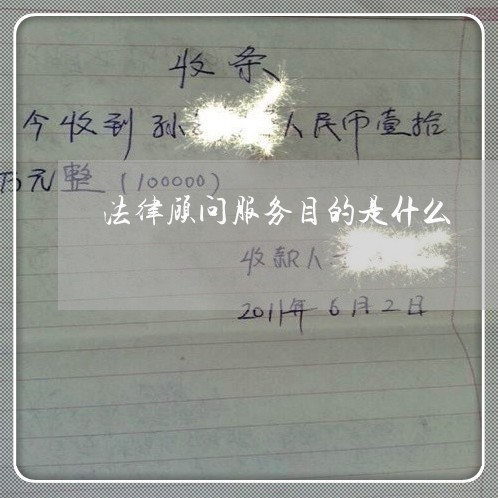 收条
今收到孙 人民币壹拾
万元整（100000）
法律顾问服务目的是什么
收款人
2011年6月2日